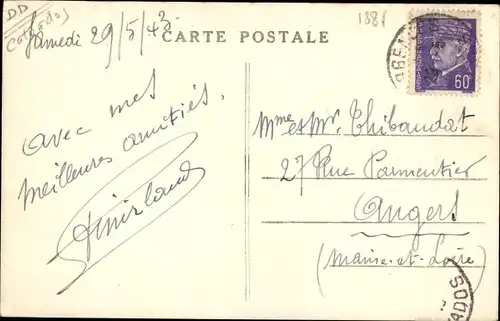 DD
Calvados
Samedi 29/5/43
CARTE POSTALE
1381
ARGENCES
60c
avec mes
meilleures amitiés,
Mme et Mr. Thibaudat
27 Rue Parmentier
Angers
(Maine-et-Loire)